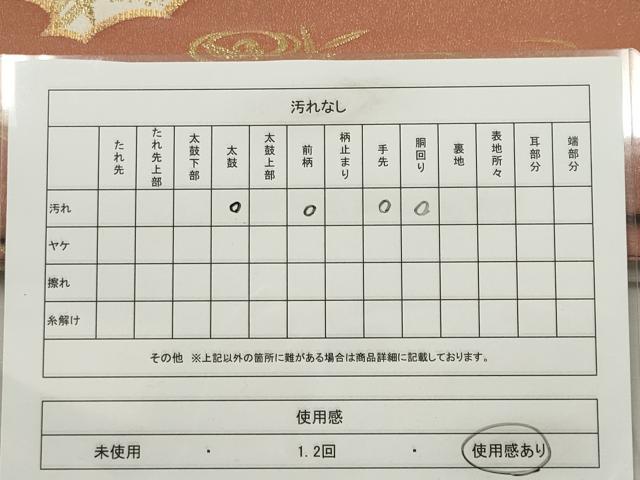 汚れなし
たれ先 たれ先上部 太鼓下部 太鼓 太鼓上部 前柄 柄止まり 手先 胴回り 裏地 表地所々 耳部分 端部分
汚れ ○ ○ ○ ○
ヤケ
擦れ
糸解け
その他 ※上記以外の箇所に難がある場合は商品詳細に記載しております。
使用感
未使用 ・ 1.2回 ・ 使用感あり